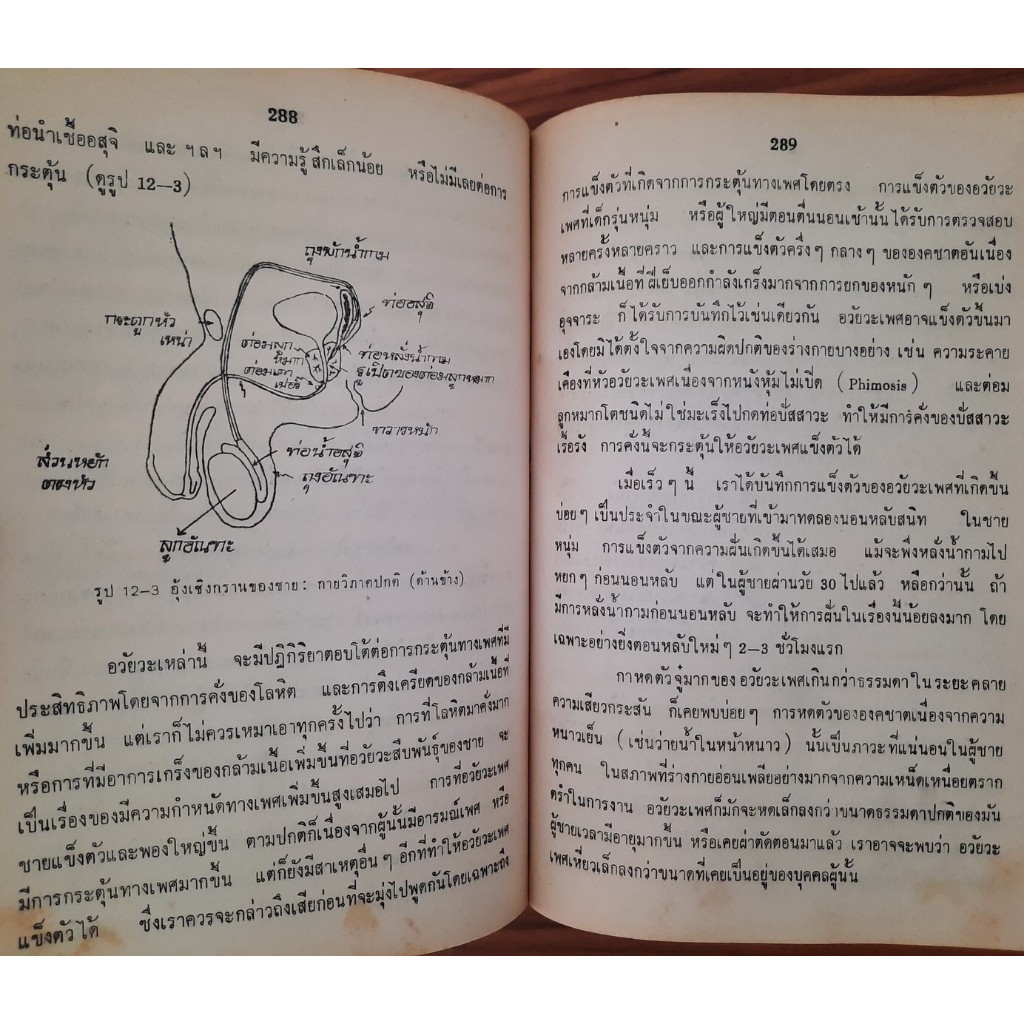 288
ท่อนำเชื้ออสุจิ และ ฯลฯ มีความรู้สึกเล็กน้อย หรือไม่มีเลยต่อการ
กระตุ้น (ดูรูป 12—3)
ถุงพักน้ำกาม
ท่ออสุจิ
กระดูกหัว
เหน่า
ต่อมลูก
หมาก
ต่อมเคา
เปอร์
ท่อหลั่งน้ำกาม
รูเปิดของต่อมลูกหมาก
ทวารหนัก
ส่วนหยัก
ของหัว
ท่อน้ำอสุจิ
ถุงอัณฑะ
ลูกอัณฑะ
รูป 12—3 อุ้งเชิงกรานของชาย: กายวิภาคปกติ (ด้านข้าง)
อวัยวะเหล่านี้ จะมีปฏิกิริยาตอบโต้ต่อการกระตุ้นทางเพศที่มี
ประสิทธิภาพโดยจากการคั่งของโลหิต และการตึงเครียดของกล้ามเนื้อที่
เพิ่มมากขึ้น แต่เราก็ไม่ควรเหมาเอาทุกครั้งไปว่า การที่โลหิตมาคั่งมาก
หรือการที่มีอาการเกร็งของกล้ามเนื้อเพิ่มขึ้นที่อวัยวะสืบพันธุ์ของชาย จะ
เป็นเรื่องของมีความกำหนัดทางเพศเพิ่มขึ้นสูงเสมอไป การที่อวัยวะเพศ
ชายแข็งตัวและพองใหญ่ขึ้น ตามปกติก็เนื่องจากผู้นั้นมีอารมณ์เพศ หรือ
มีการกระตุ้นทางเพศมากขึ้น แต่ก็ยังมีสาเหตุอื่นๆ อีกที่ทำให้อวัยวะเพศ
แข็งตัวได้ ซึ่งเราควรจะกล่าวถึงเสียก่อนที่จะมุ่งไปพูดกันโดยเฉพาะถึง
289
การแข็งตัวที่เกิดจากการกระตุ้นทางเพศโดยตรง การแข็งตัวของอวัยวะ
เพศที่เด็กรุ่นหนุ่ม หรือผู้ใหญ่มีตอนตื่นนอนเช้านั้นได้รับการตรวจสอบ
หลายครั้งหลายคราว และการแข็งตัวครึ่งๆ กลางๆ ขององคชาตอันเนื่อง
จากกล้ามเนื้อที่ฝีเย็บออกกำลังเกร็งมากจากการยกของหนักๆ หรือเบ่ง
อุจจาระ ก็ได้รับการบันทึกไว้เช่นเดียวกัน อวัยวะเพศอาจแข็งตัวขึ้นมา
เองโดยมิได้ตั้งใจจากความผิดปกติของร่างกายบางอย่าง เช่น ความระคาย
เคืองที่หัวอวัยวะเพศเนื่องจากหนังหุ้มไม่เปิด (Phimosis) และต่อม
ลูกหมากโตชนิดไม่ใช่มะเร็งไปกดท่อปัสสาวะ ทำให้มีการคั่งของปัสสาวะ
เรื้อรัง การคั่งนี้จะกระตุ้นให้อวัยวะเพศแข็งตัวได้
เมื่อเร็วๆ นี้ เราได้บันทึกการแข็งตัวของอวัยวะเพศที่เกิดขึ้น
บ่อยๆ เป็นประจำในขณะผู้ชายที่เข้ามาทดลองนอนหลับสนิท ในชาย
หนุ่ม การแข็งตัวจากความฝันเกิดขึ้นได้เสมอ แม้จะพึ่งหลั่งน้ำกามไป
หยกๆ ก่อนนอนหลับ แต่ในผู้ชายผ่านวัย 30 ไปแล้ว หลือกว่านั้น ถ้า
มีการหลั่งน้ำกามก่อนนอนหลับ จะทำให้การฝันในเรื่องนี้น้อยลงมาก โดย
เฉพาะอย่างยิ่งตอนหลับใหม่ๆ 2—3 ชั่วโมงแรก
กาหดตัวจู๋มากของอวัยวะเพศเกินกว่าธรรมดาในระยะคลาย
ความเสียวกระสัน ก็เคยพบบ่อยๆ การหดตัวขององคชาตเนื่องจากความ
หนาวเย็น (เช่นว่ายน้ำในหน้าหนาว) นั้นเป็นภาวะที่แน่นอนในผู้ชาย
ทุกคน ในสภาพที่ร่างกายอ่อนเพลียอย่างมากจากความเหน็ดเหนื่อยตราก
ตรำในการงาน อวัยวะเพศก็มักจะหดเล็กลงกว่าขนาดธรรมดาปกติของมัน
ผู้ชายเวลามีอายุมากขึ้น หรือเคยผ่าตัดตอนมาแล้ว เราอาจจะพบว่า อวัยวะ
เพศเหี่ยวเล็กลงกว่าขนาดที่เคยเป็นอยู่ของบุคคลผู้นั้น